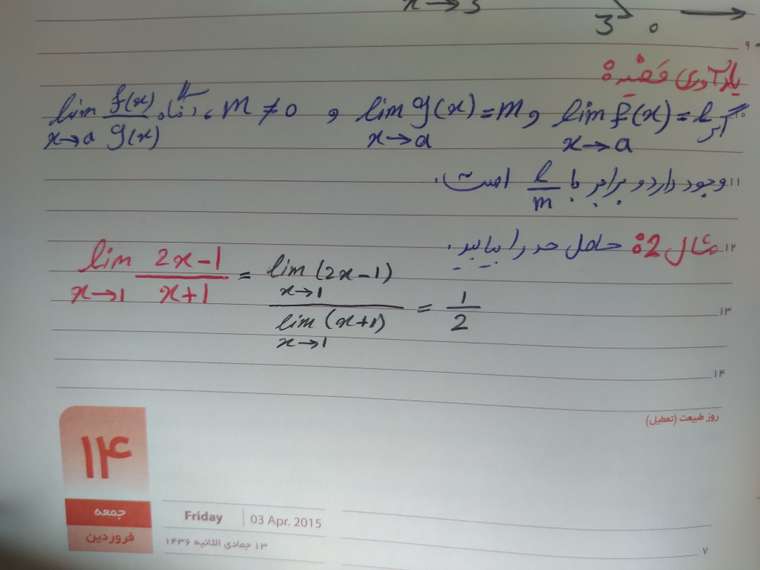 x→3
3 0
۹
یادآوری قضیه:
۱۰ اگر lim f(x) = l x→a و lim g(x) = m x→a و m ≠ 0، آنگاه lim f(x)/g(x) x→a
۱۱ وجود دارد و برابر با l/m است.
۱۲ مثال 2: حاصل حد را بیابید.
lim x→1 (2x-1)/(x+1) = lim x→1 (2x-1) / lim x→1 (x+1) = 1/2
۱۳
۱۴
روز طبیعت (تعطیل)
۱۴
جمعه
فروردین
Friday 03 Apr. 2015
۱۳ جمادی الثانیه ۱۴۳۶
۷